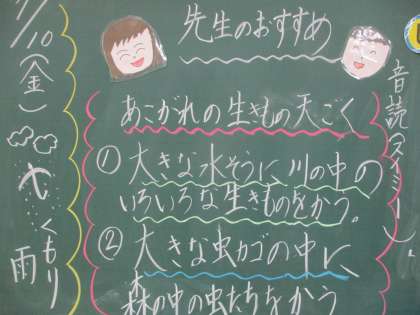 音読(スイミー)
先生のおすすめ
あこがれの生きもの天ごく
① 大きな水そうに、川の中の
いろいろな生きものをかう。
② 大きな虫カゴの中に
森の中の虫たちをかう
/10(金)
くもり
雨